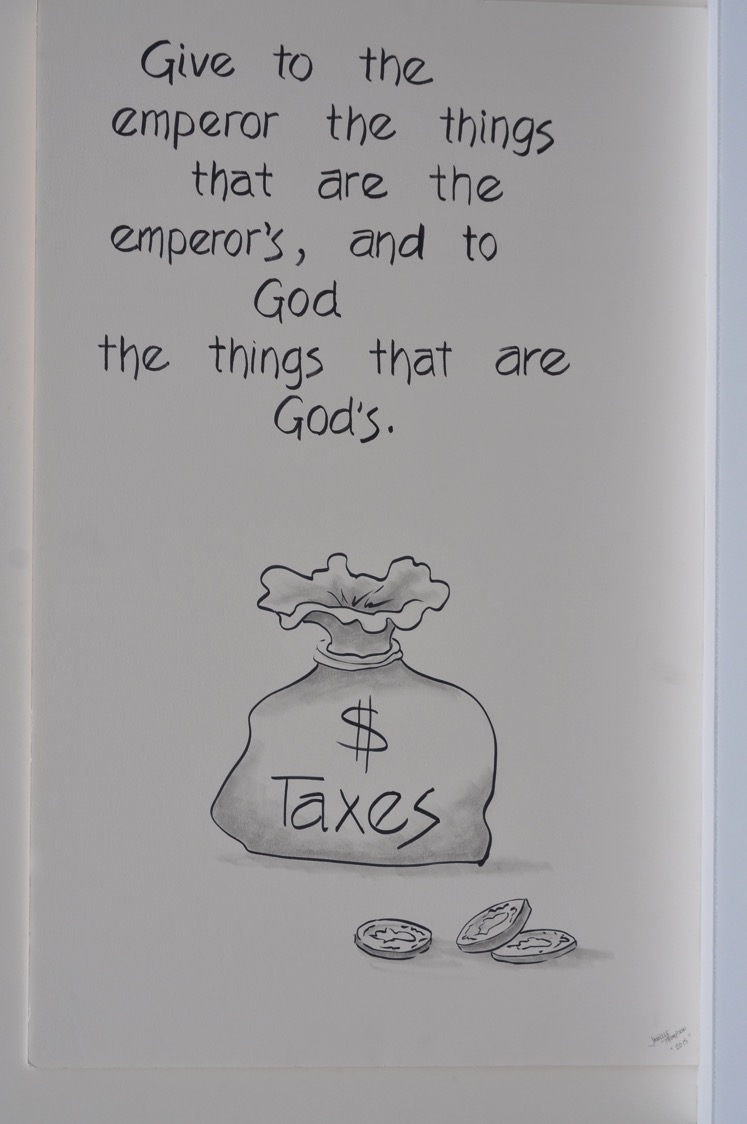 Give to the
emperor the things
that are the
emperor's, and to
God
the things that are
God's.
$
Taxes